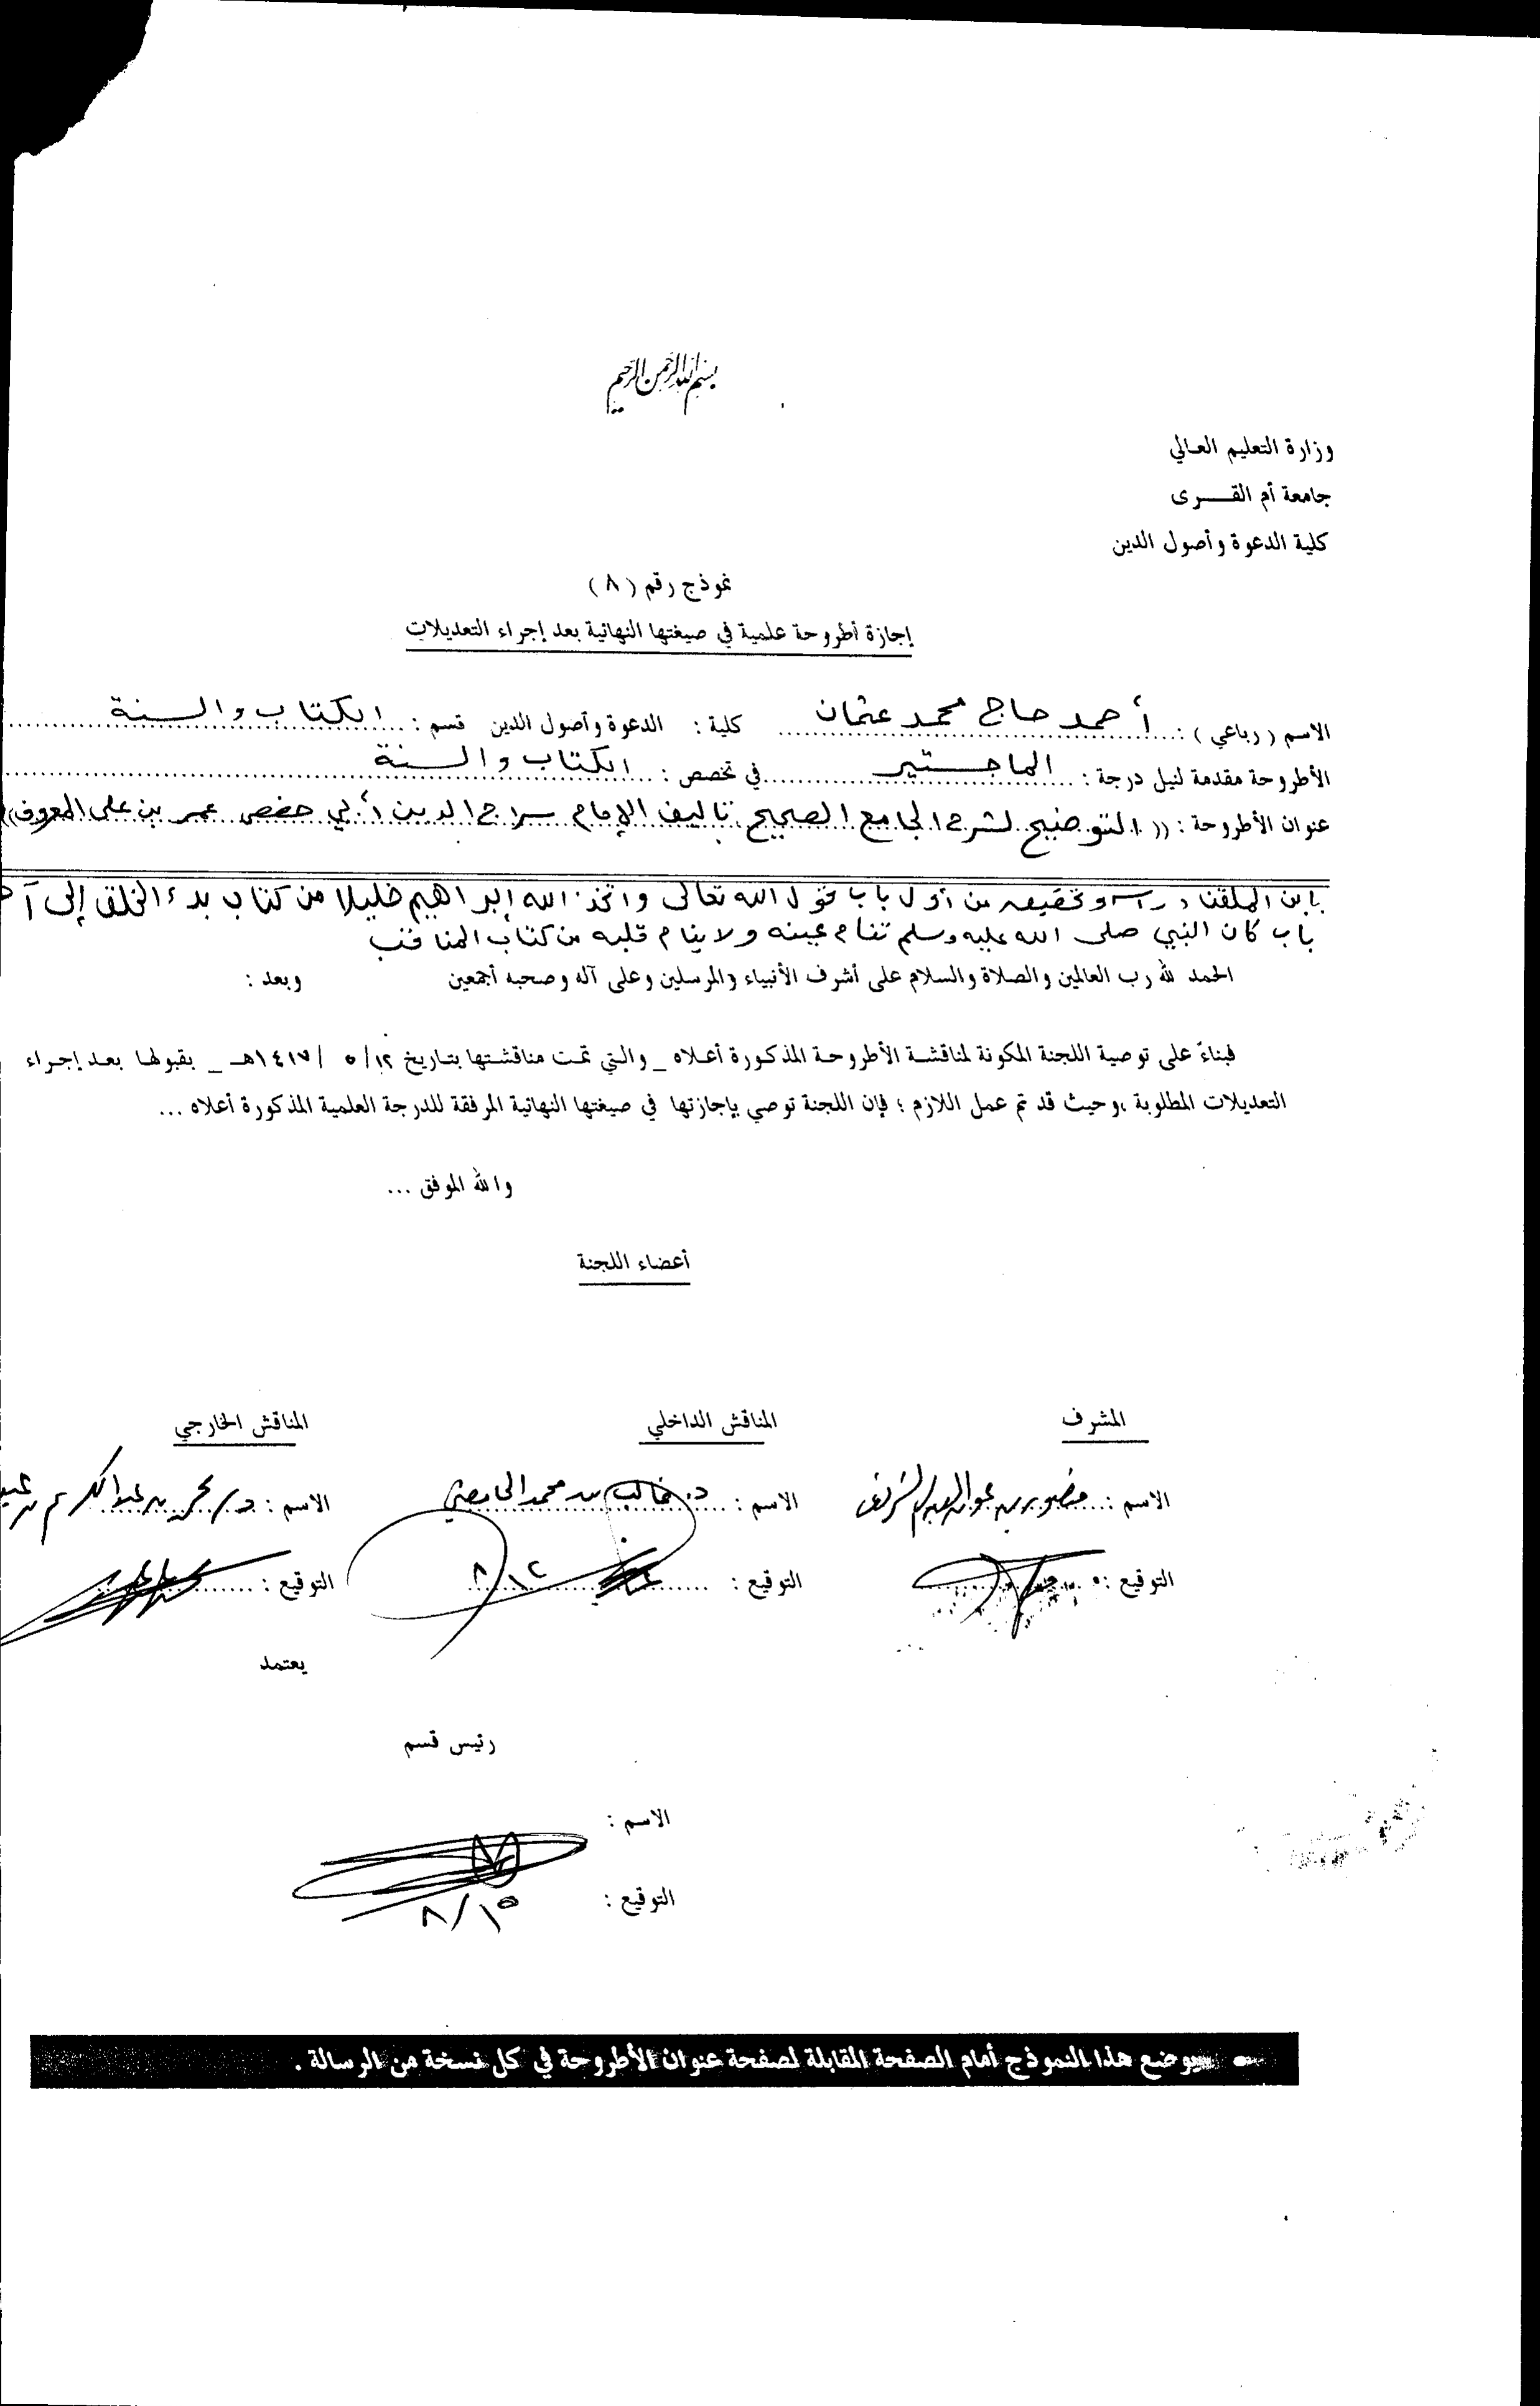 بسم الله الرحمن الرحيم
وزارة التعليم العالي
جامعة أم القــــرى
كلية الدعوة وأصول الدين
نموذج رقم (٨)
إجازة أطروحة علمية في صيغتها النهائية بعد إجراء التعديلات
الاسم (رباعي) : أحمد حاج محمد عثمان كلية : الدعوة وأصول الدين قسم : الكتاب والسنة
الأطروحة مقدمة لنيل درجة : الماجستير في تخصص : الكتاب والسنة
عنوان الأطروحة : (( التوضيح لشرح الجامع الصحيح تأليف الإمام سراج الدين أبي حفص عمر بن علي المعروف))
بابن الملقن دراسة وتحقيق من أول باب قول الله تعالى واتخذ الله إبراهيم خليلا من كتاب بدء الخلق إلى
باب كان النبي صلى الله عليه وسلم تنام عينه ولا ينام قلبه من كتاب المناقب
الحمد لله رب العالمين والصلاة والسلام على أشرف الأنبياء والمرسلين وعلى آله وصحبه أجمعين وبعد :
فبناءً على توصية اللجنة المكونة لمناقشة الأطروحة المذكورة أعلاه _ والتي تمت مناقشتها بتاريخ ١٢/ ٥ /١٤١٧هـ _ بقبولها بعد إجراء
التعديلات المطلوبة ،وحيث قد تم عمل اللازم ؛ فإن اللجنة توصي بإجازتها في صيغتها النهائية المرفقة للدرجة العلمية المذكورة أعلاه ...
والله الموفق ...
أعضاء اللجنة
المشرف المناقش الداخلي المناقش الخارجي
الاسم : منصور بن عون العبدلي الشريف الاسم : د. غالب بن محمد الحامضي الاسم : د/ بن عبدالكريم بن
التوقيع : التوقيع : ٨/١٢ التوقيع :
يعتمد
رئيس قسم
الاسم :
التوقيع :
٨/١٥
يوضع هذا النموذج أمام الصفحة المقابلة لصفحة عنوان الأطروحة في كل نسخة من الرسالة .